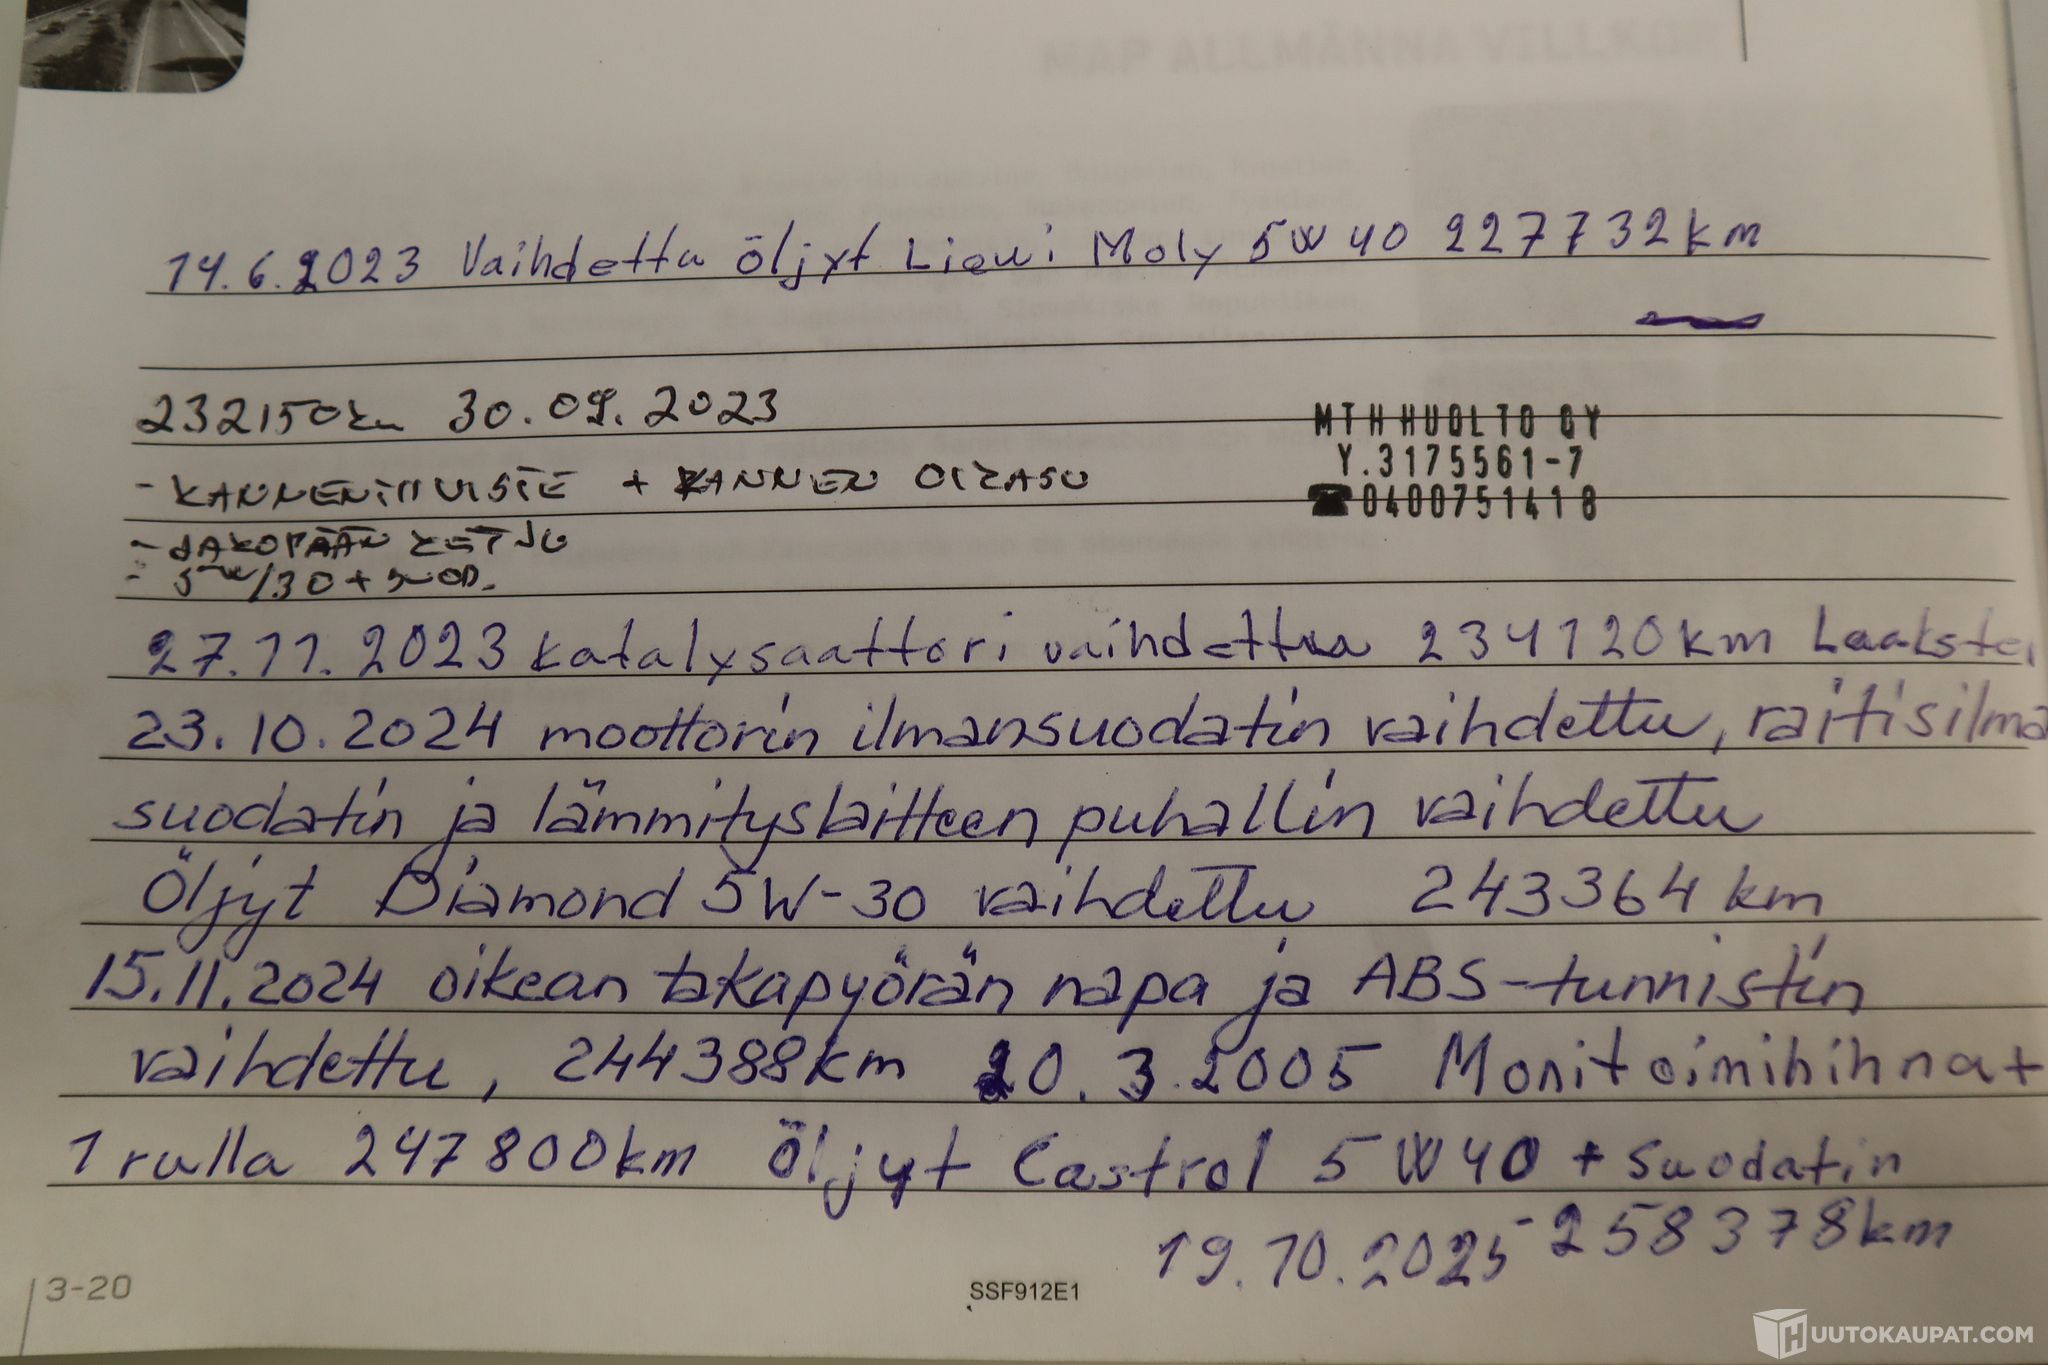 MAP ALLMÄNNA VILLKOR
14.6.2023 Vaihdettu öljyt Liqui Moly 5W40 227732km
232150km 30.09.2023
MTH HUOLTO OY
Y.3175561-7
- KANNENTIIVISTE + KANNEN OIKASU
☎0400751418
- JAKOPÄÄN KETJU
- 5W/30 + SUOD.
27.11.2023 katalysaattori vaihdettu 234120km
23.10.2024 moottorin ilmansuodatin vaihdettu, raitisilma
suodatin ja lämmityslaitteen puhallin vaihdettu
Öljyt Diamond 5W-30 vaihdettu 243364 km
15.11.2024 oikean takapyörän napa ja ABS-tunnistin
vaihdettu, 244388km 20.3.2005 Monitoimihihnat
1 rulla 247800km Öljyt Castrol 5W40 + suodatin
19.10.2025 - 258378km
3-20
SSF912E1
HUUTOKAUPAT.COM